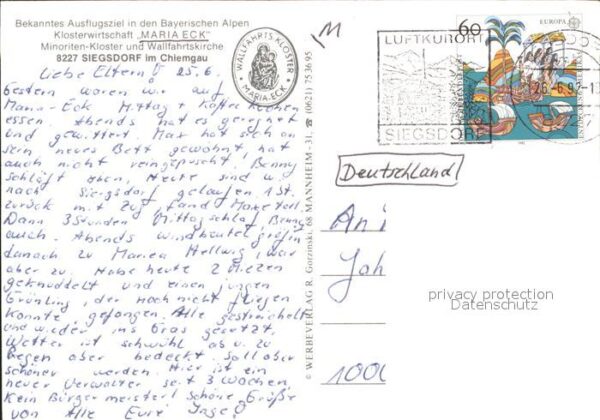 Bekanntes Ausflugsziel in den Bayerischen Alpen
Klosterwirtschaft „MARIA ECK"
Minoriten-Kloster und Wallfahrtskirche
8227 SIEGSDORF im Chiemgau
Liebe Eltern! 25.6.
Gestern waren wir auf
Maria-Eck Mittag + Kaffee Kuchen
essen. Abends hat es geregnet
und gewittert. Max hat sich an
sein neues Bett gewöhnt, hat
auch nicht reingepuscht, Benny
schläft oben. Heute sind wir
nach Siegsdorf gelaufen 1 St.
zurück mit Zug, fand Maxe toll.
Dann 3 Stunden Mittagschlaf, Benny
auch. Abends Windbeutelgräfin
danach zu Maria Hellwig, war
aber zu. Habe heute 2 Miezen
geknuddelt und einen jungen
Grünling, der noch nicht fliegen
konnte, gefangen. Alle gestreichelt
und wieder ins Gras gesetzt.
Wetter ist schwühl ab u. zu
Regen aber bedeckt. Soll aber
schöner werden. Hier ist ein
neuer Verwalter seit 3 Wochen,
Kein Bürgermeister! Schöne Grüße
von Alle Eure
WALLFAHRTS KLOSTER
• MARIA-ECK •
© WERBEVERLAG R. Gorzinski, 68 MANNHEIM - 31, ☎ (0621) 75 36 95
M
LUFTKURORT
SIEGSDORF
60
EUROPA
Deutschland
An
Joh
100
privacy protection
Datenschutz